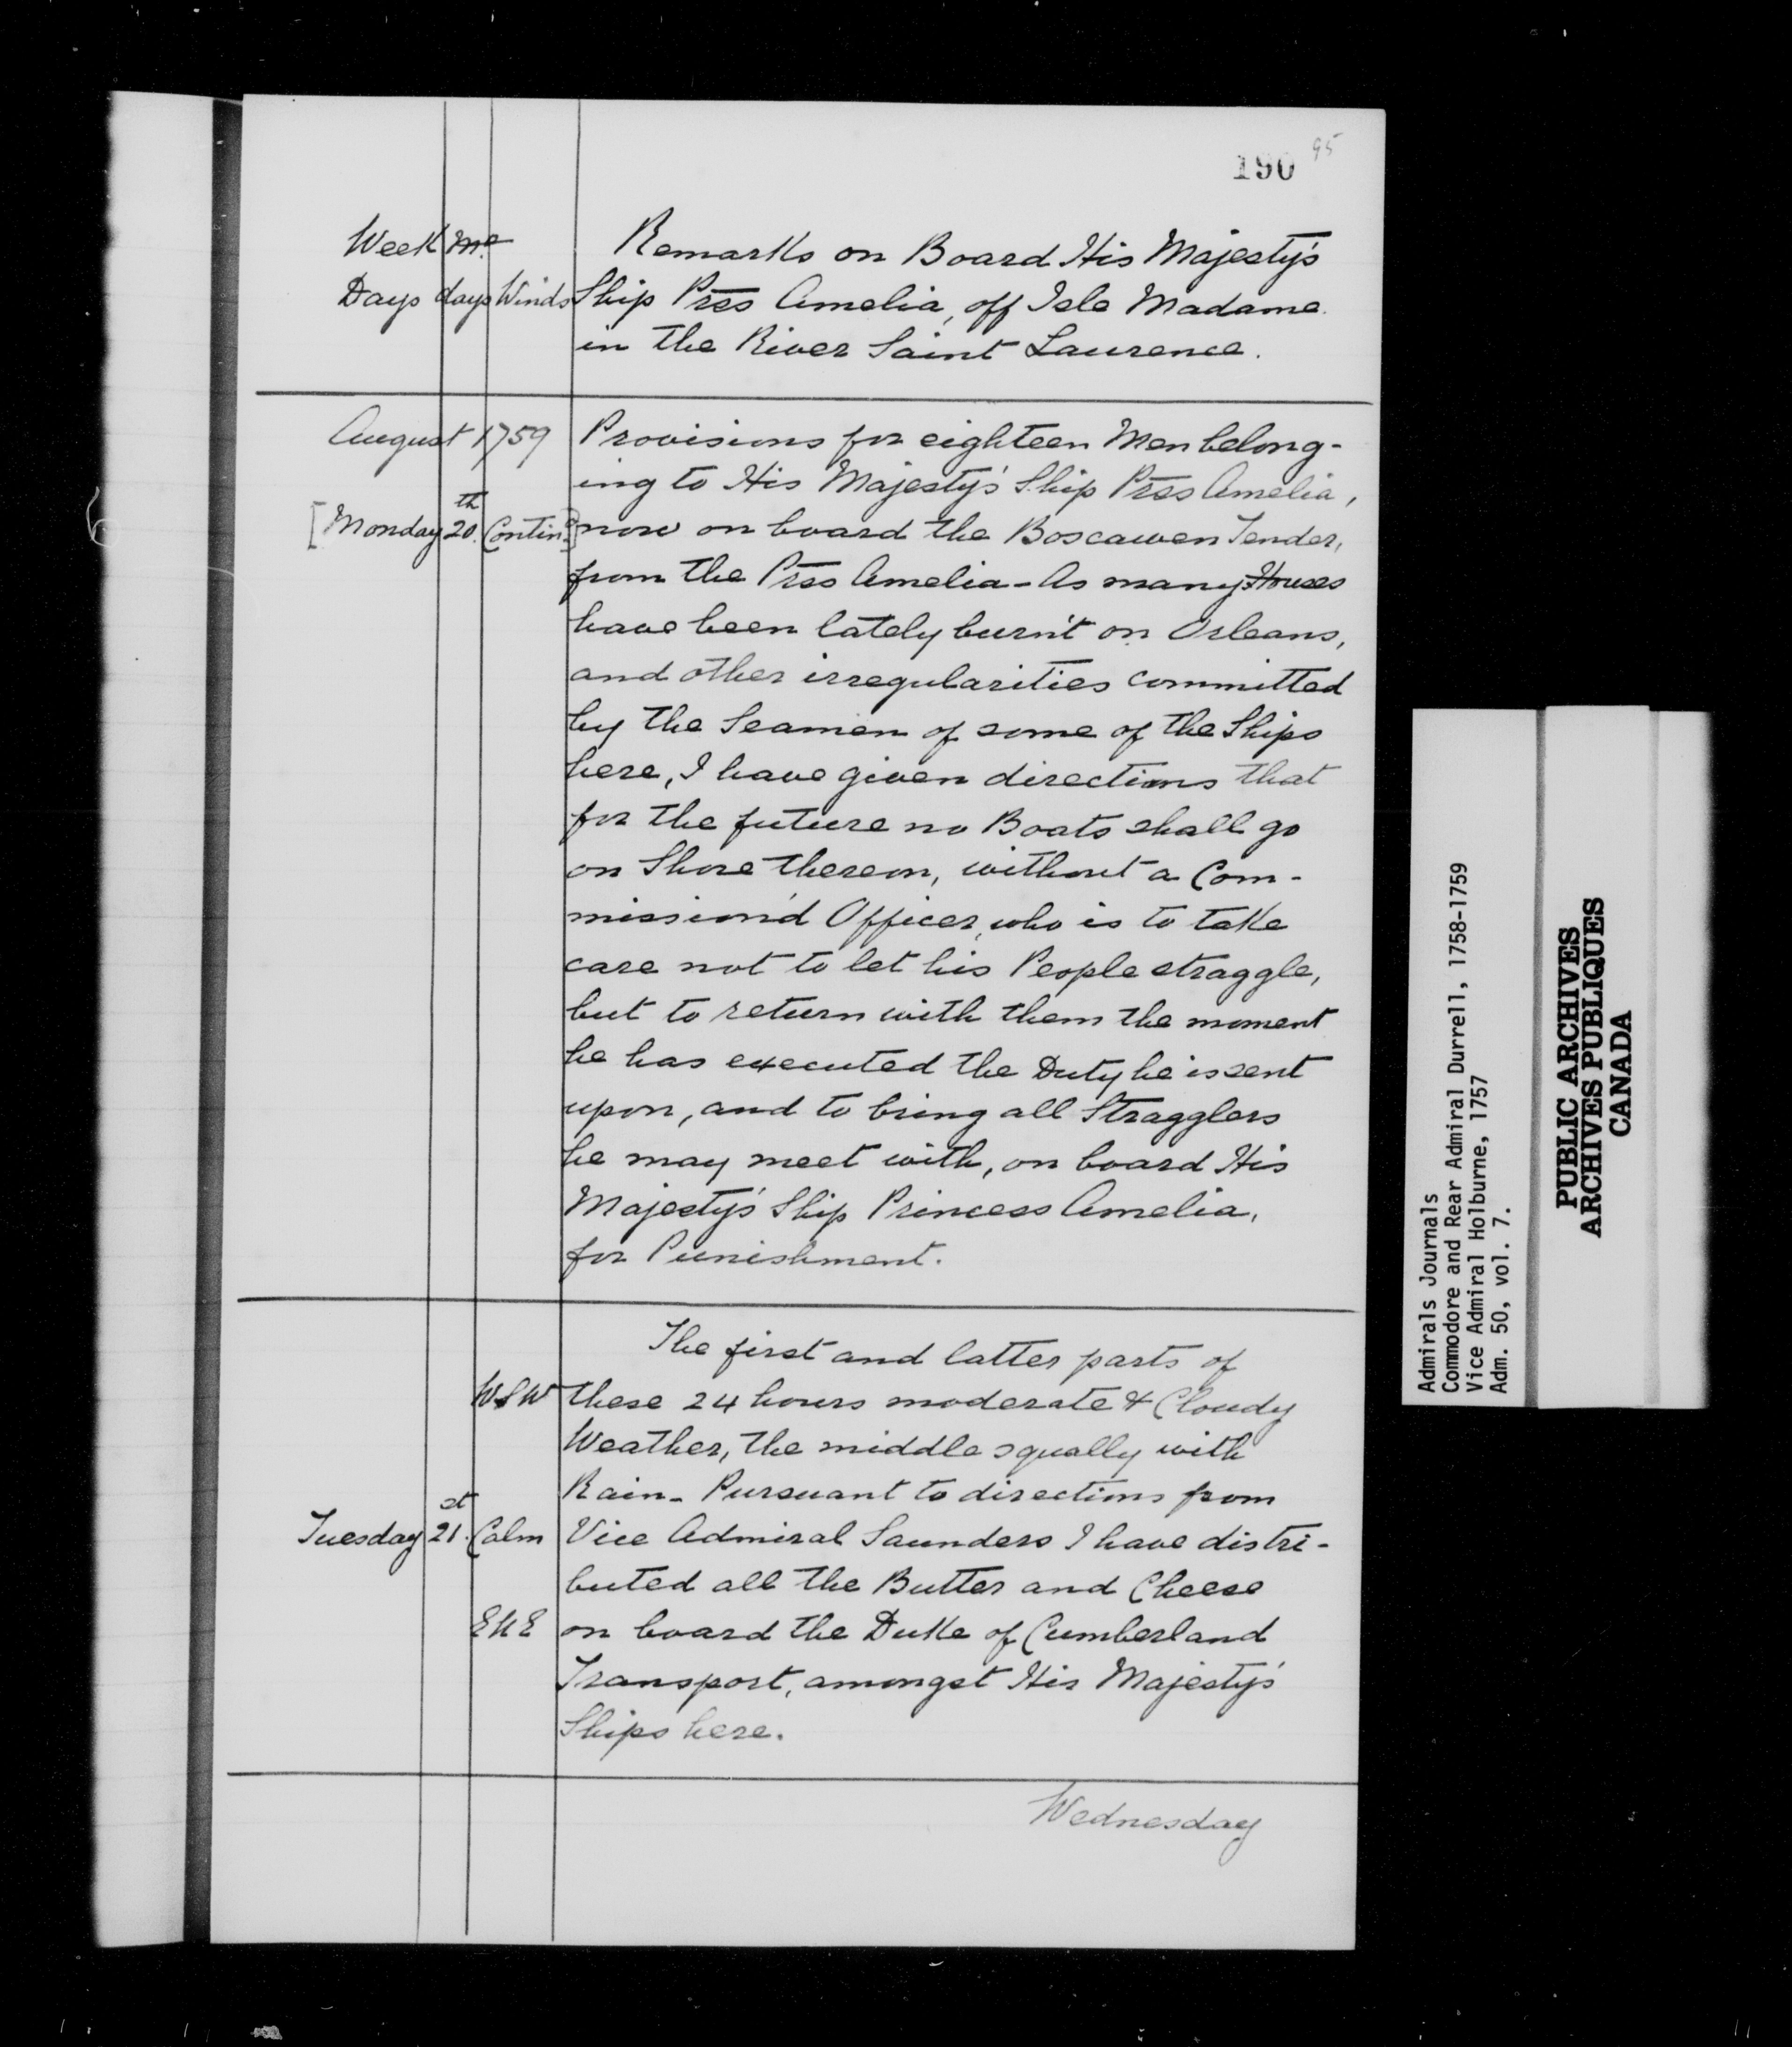 190 95
Week Mo. Remarks on Board His Majesty's
Days days Winds Ship Prss Amelia, off Isle Madame
in the River Saint Laurence.
August 1759 Provisions for eighteen Men belong-
ing to His Majesty's Ship Prss Amelia,
[Monday 20th. Contind] now on board the Boscawen Tender,
from the Prss Amelia - As many Houses
have been lately burn't on Orleans,
and other irregularities committed
by the Seamen of some of the Ships
here, I have given directions that
for the future no Boats shall go
on Shore thereon, without a Com-
mission'd Officer, who is to take
care not to let his People straggle,
but to return with them the moment
he has executed the Duty he is sent
upon, and to bring all Stragglers
he may meet with, on board His
Majesty's Ship Princess Amelia,
for Punishment.
The first and latter parts of
WSW these 24 hours moderate & Cloudy
Weather, the middle squally with
Rain - Pursuant to directions from
Tuesday 21st. Calm Vice Admiral Saunders I have distri-
buted all the Butter and Cheese
ENE on board the Duke of Cumberland
Transport, amongst His Majesty's
Ships here.
Wednesday
Admirals Journals
Commodore and Rear Admiral Durrell, 1758-1759
Vice Admiral Holburne, 1757
Adm. 50, vol. 7.
PUBLIC ARCHIVES
ARCHIVES PUBLIQUES
CANADA